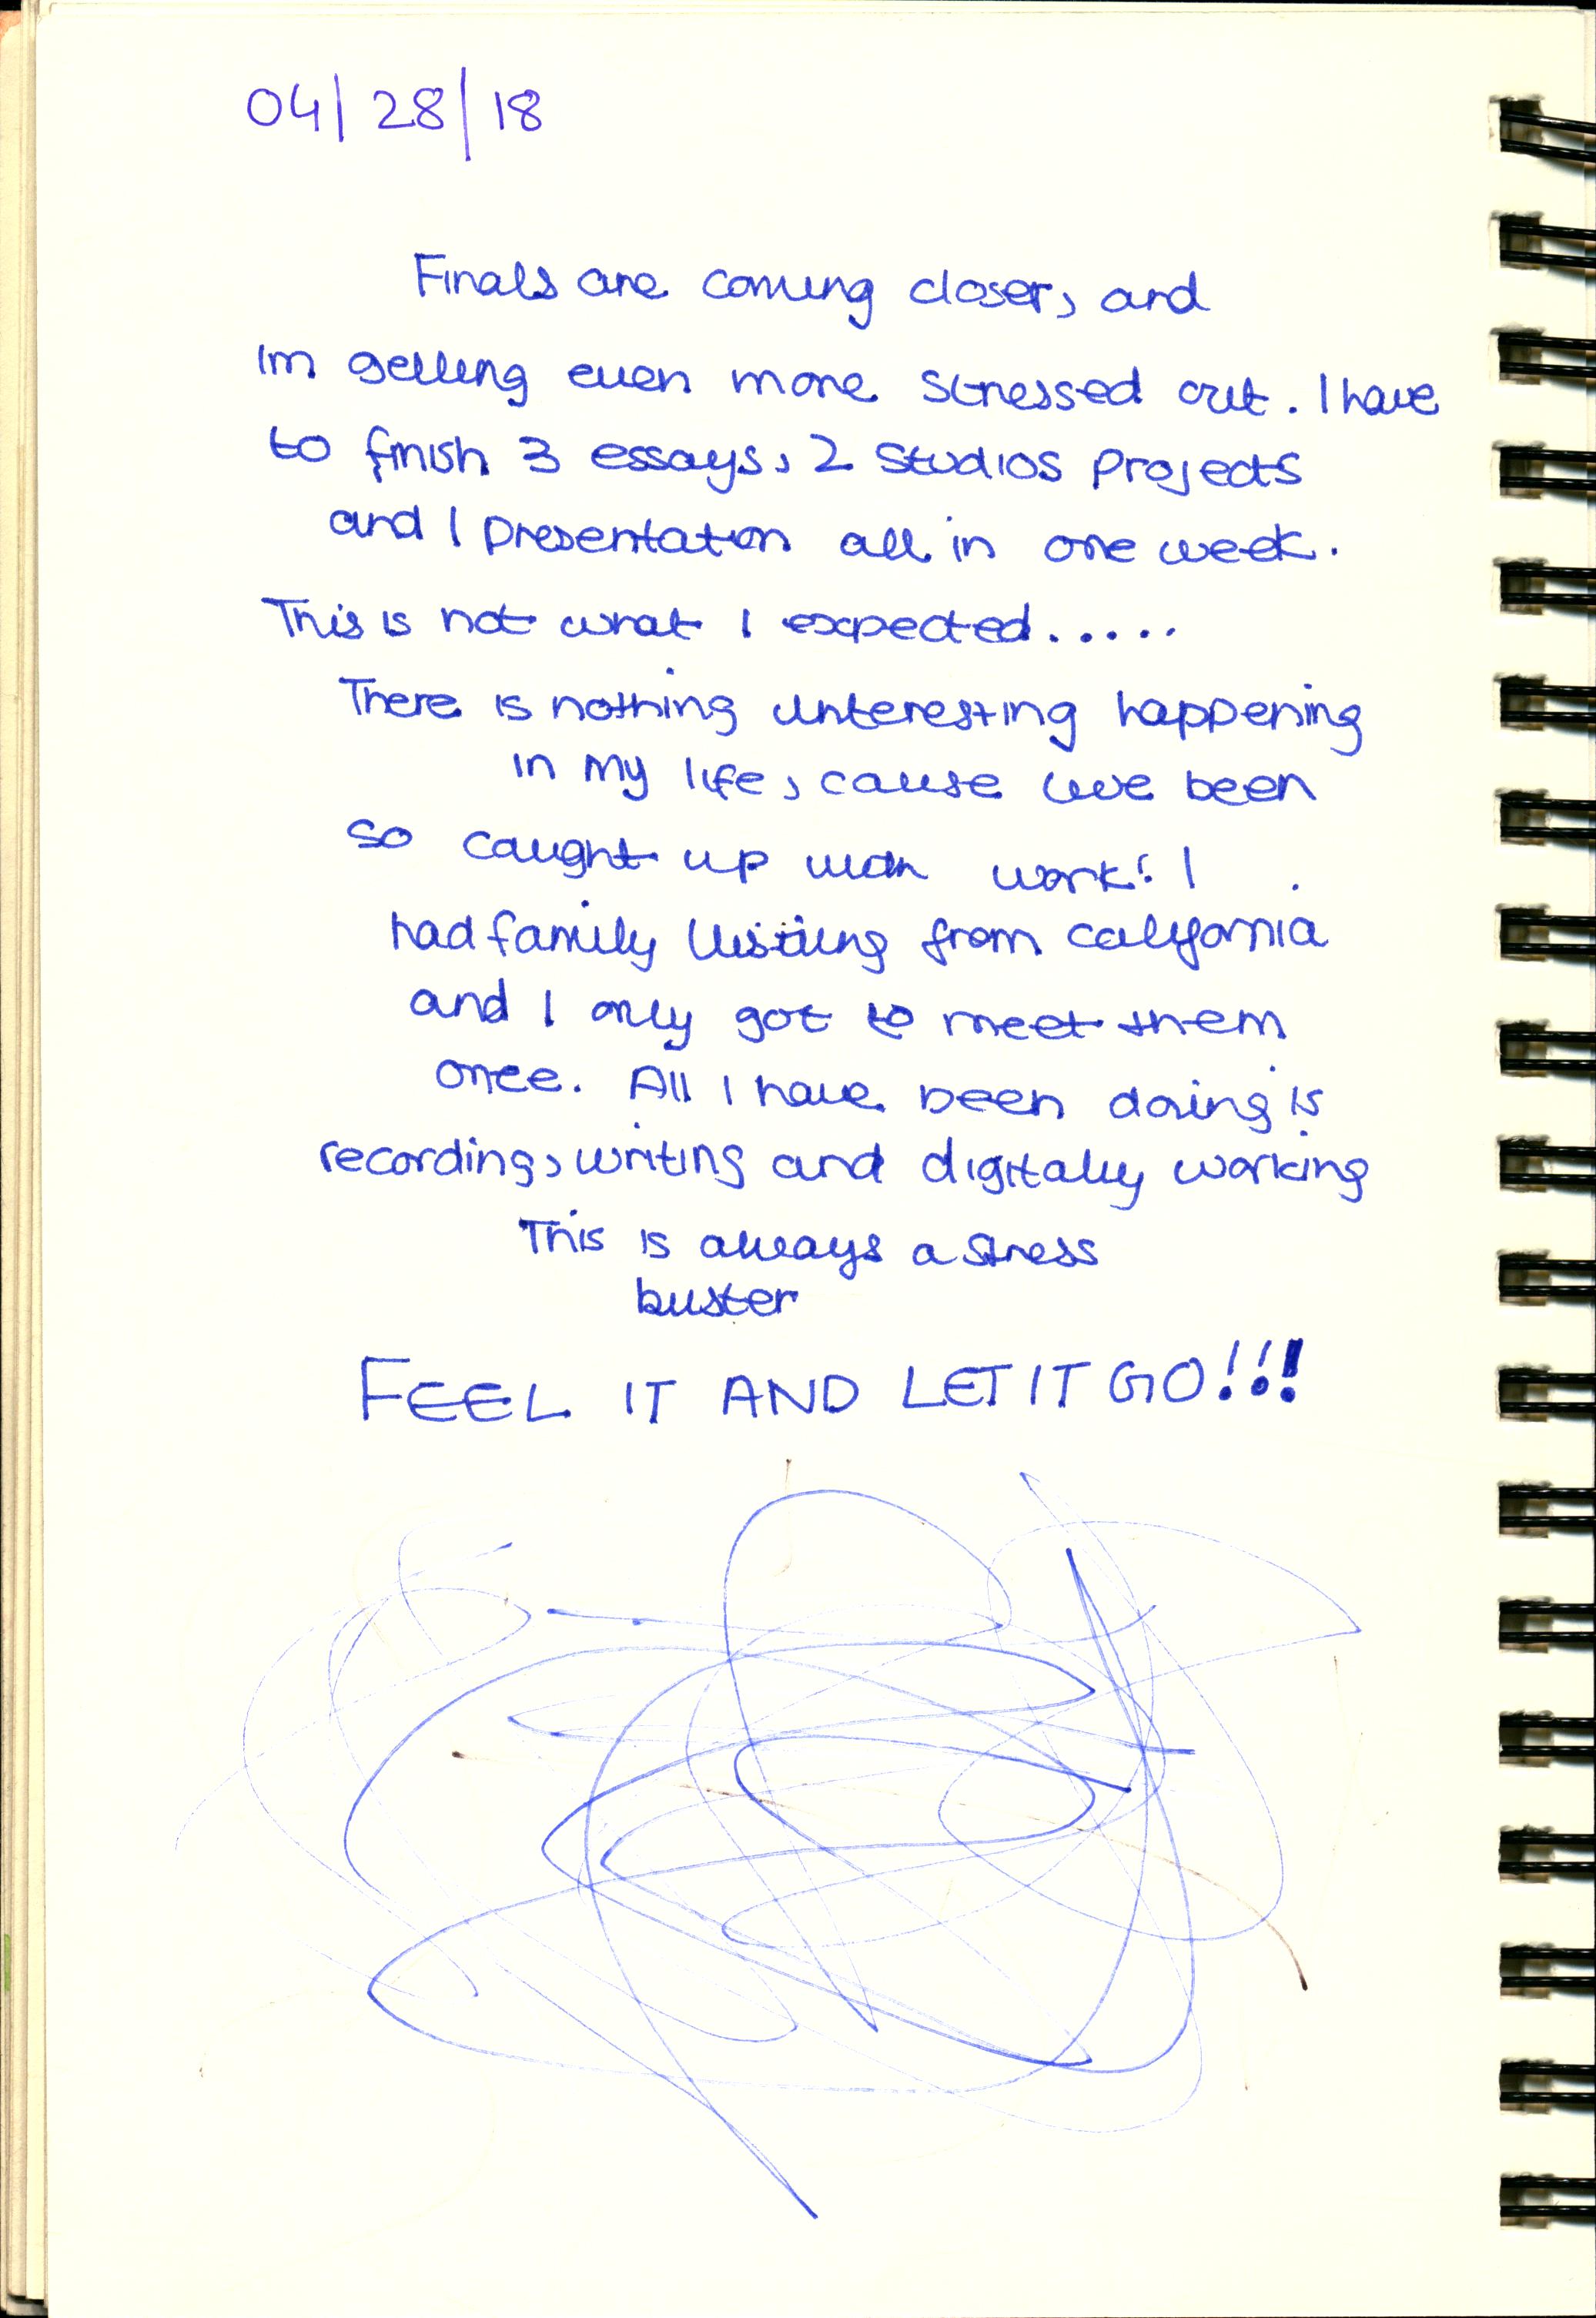 04/28/18
Finals are coming closer, and
Im getting even more stressed out. I have
to finish 3 essays, 2 studios projects
and 1 presentation all in one week.
This is not what I expected.....
There is nothing interesting happening
in my life, cause ive been
so caught up with work! I
had family visiting from california
and I only got to meet them
once. All I have been doing is
recording, writing and digitally working
This is always a stress
buster
FEEL IT AND LET IT GO!!!